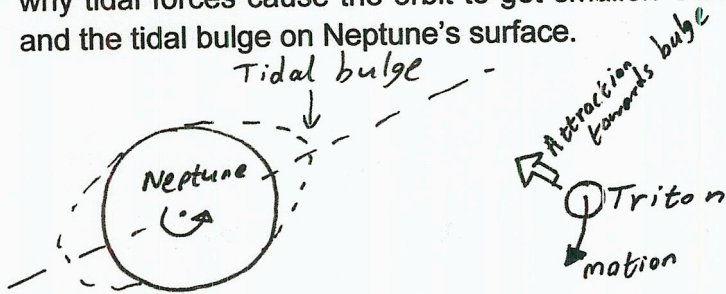 why tidal forces cause the orbit to get smaller.
and the tidal bulge on Neptune's surface.
Tidal bulge
Attraction
towards bulge
Neptune
Triton
motion